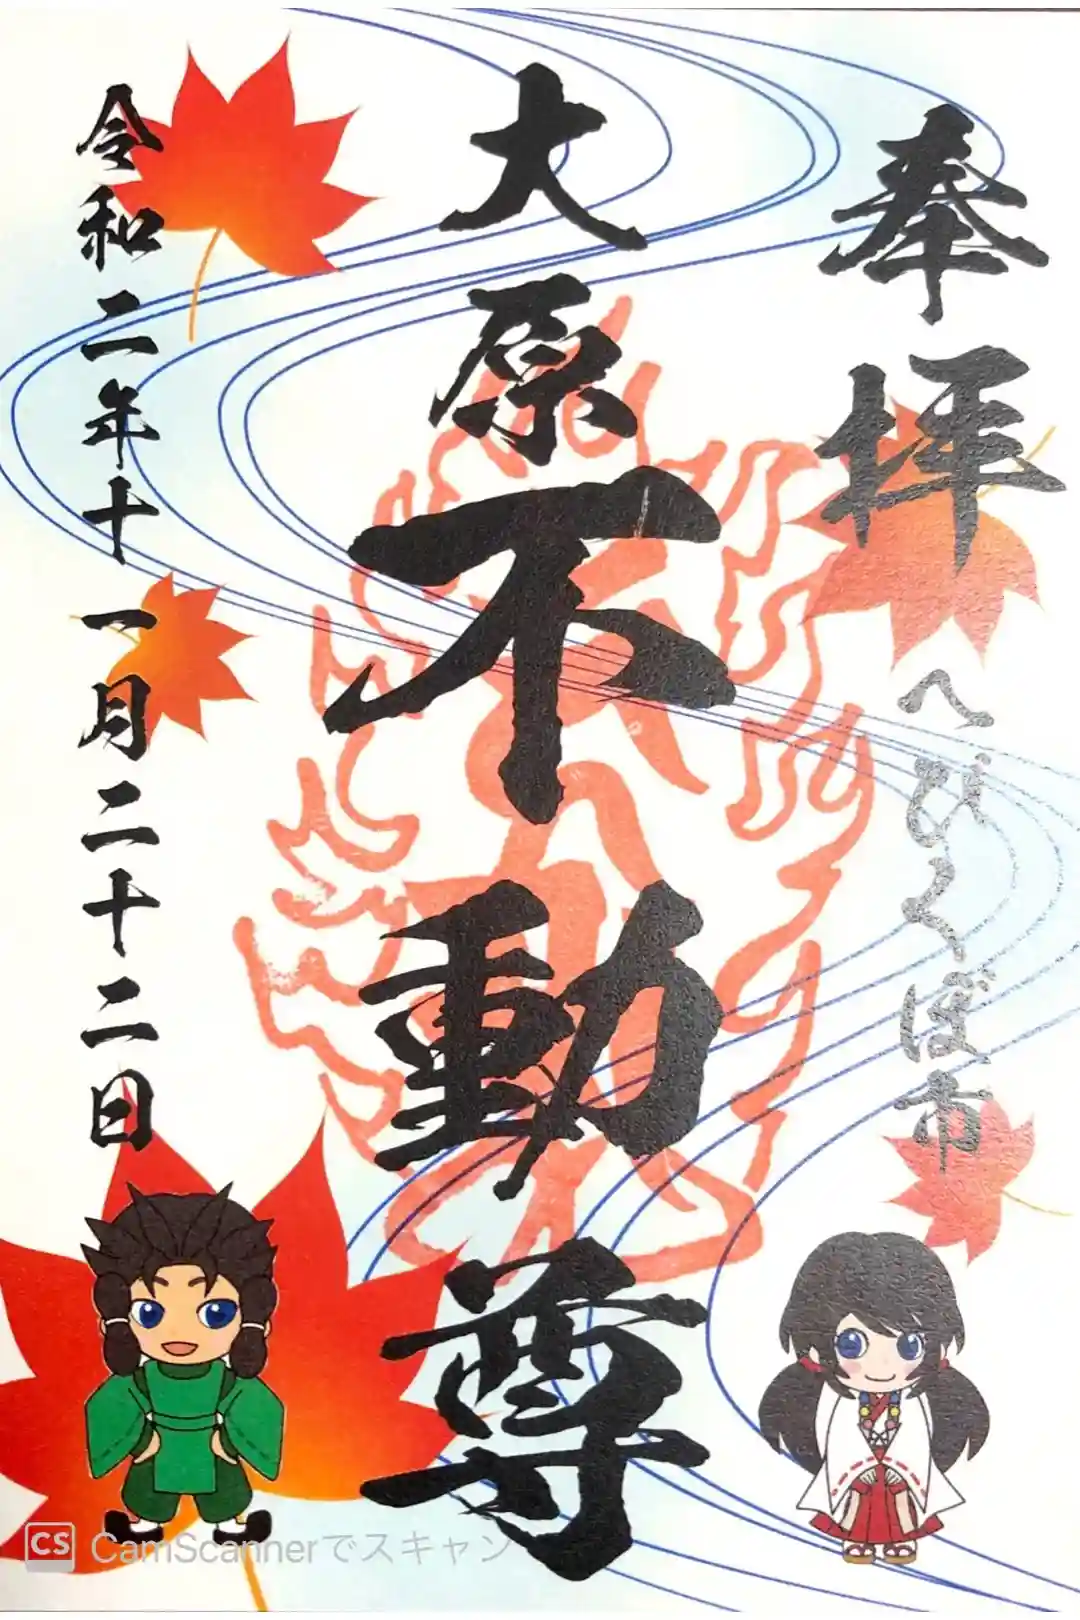 奉拝
へびくぼ市
大原不動尊
令和二年十一月二十二日
CS CamScannerでスキャン